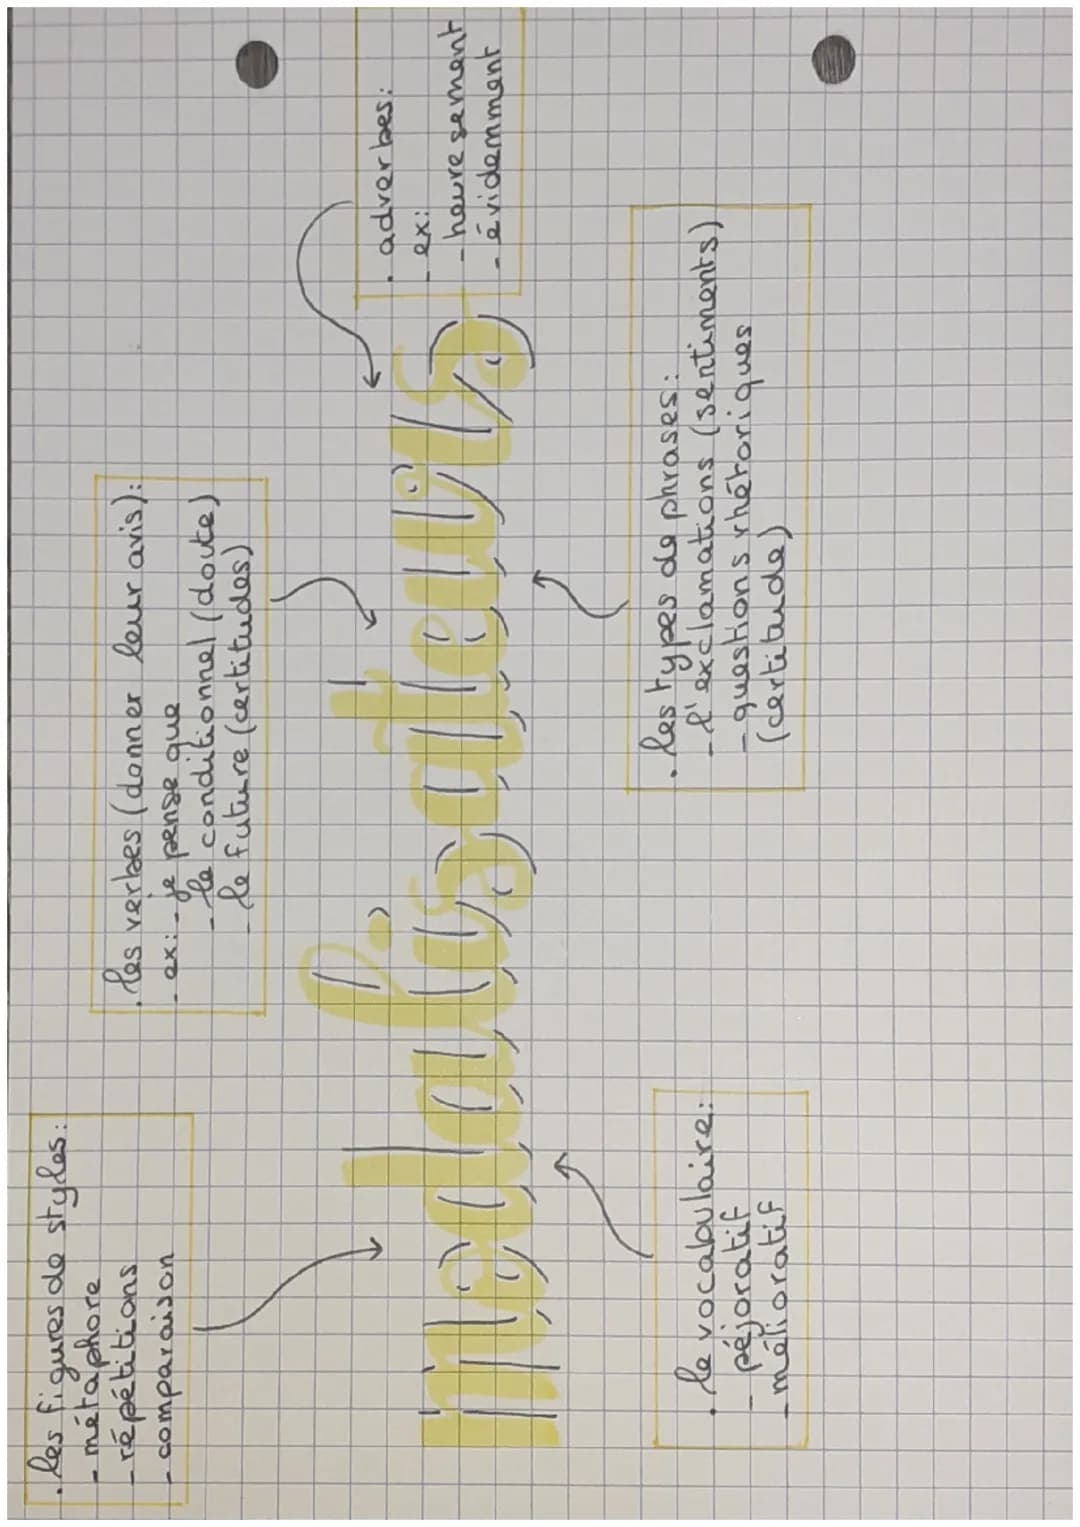 . les figures de styles:
- métaphore
- répétitions
- comparaison
. les verbes (donner leur avis):
- ex: - je pense que
- le conditionnel (doute)
- le future (certitudes)
. adverbes:
- ex:
- heuresement
- évidemment
modalisateurs
. le vocabulaire:
- péjoratif
- mélioratif
. les types de phrases:
- l'exclamations (sentiments)
- questions rhétoriques
(certitude)